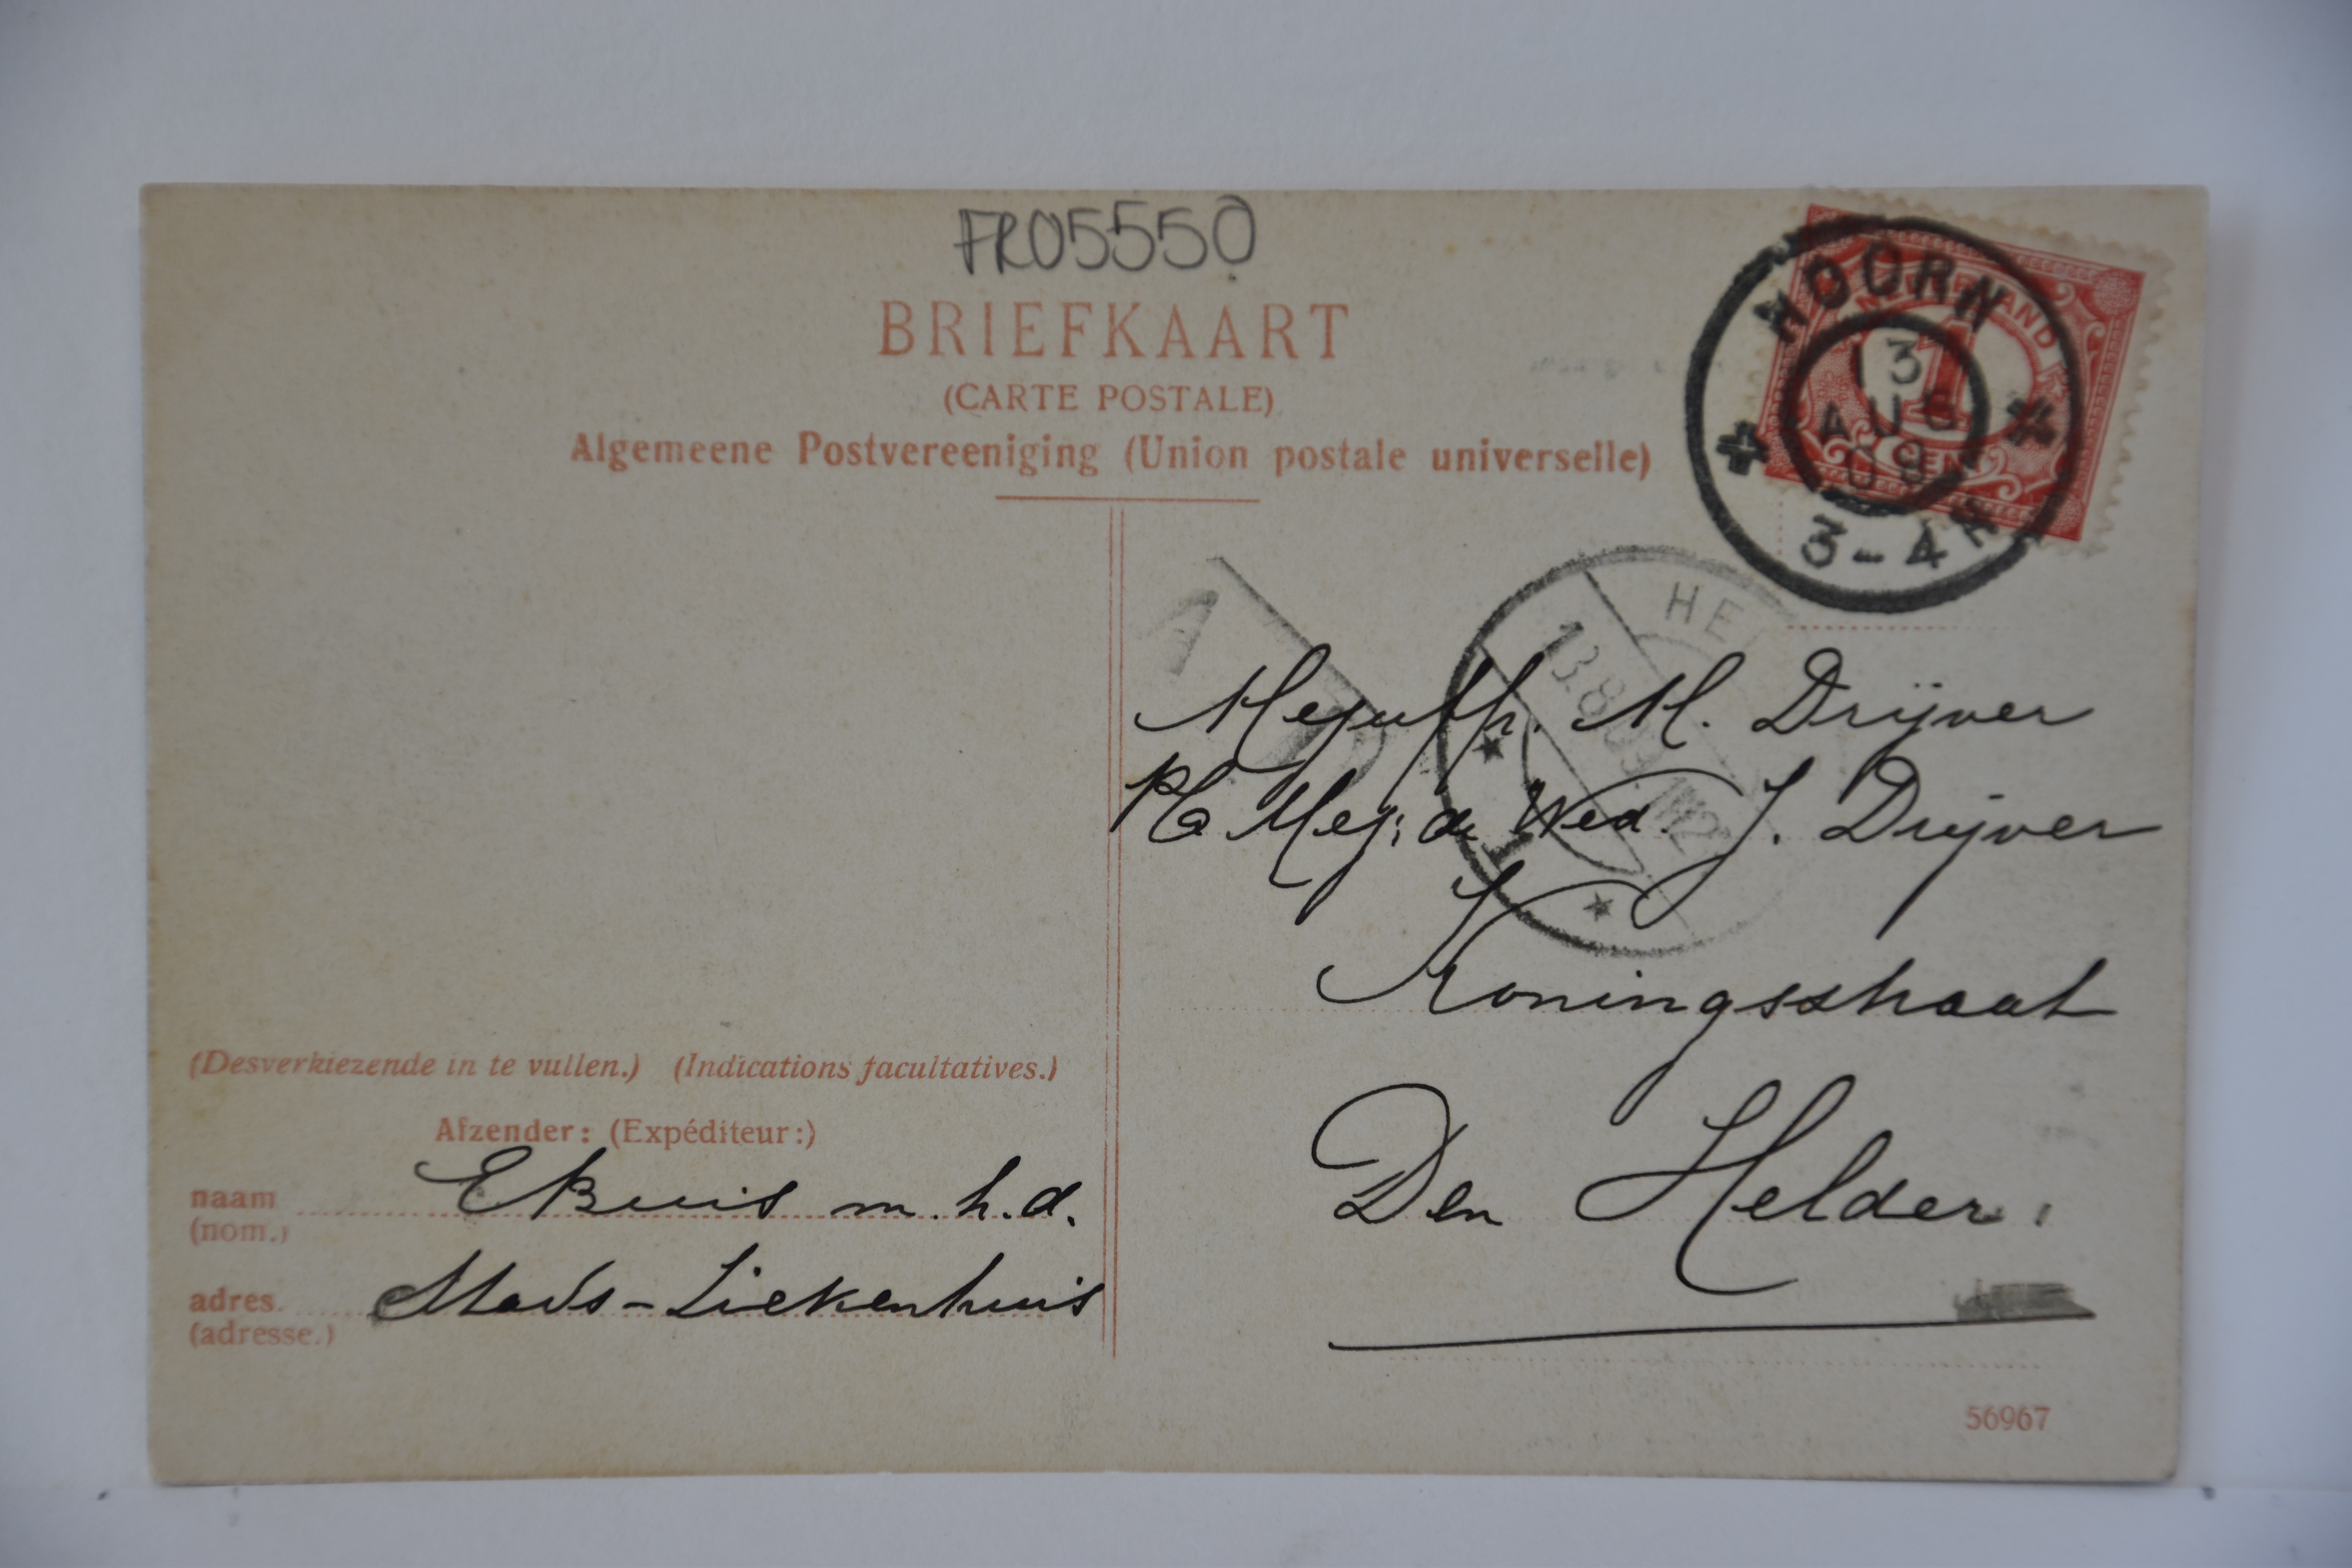 FR05550
BRIEFKAART
(CARTE POSTALE)
Algemeene Postvereeniging (Union postale universelle)
NEDERLAND
1
CENT
HOORN
13
AUG
09
3-4 N
HEL
13.8.09
A
Mejuffr. M. Drijver
p/a Mej: de Wed. J. Drijver
Koningsstraat
Den Helder.
(Desverkiezende in te vullen.) (Indications facultatives.)
Afzender: (Expéditeur:)
naam m.h.d.
(nom.)
adres. Stads-Ziekenhuis
(adresse.)
56967